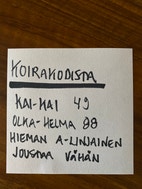 KOIRAKODISTA
KAI-KAI 49
OLKA-HELMA 38
HIEMAN A-LINJAINEN
JOUSTAA VÄHÄN